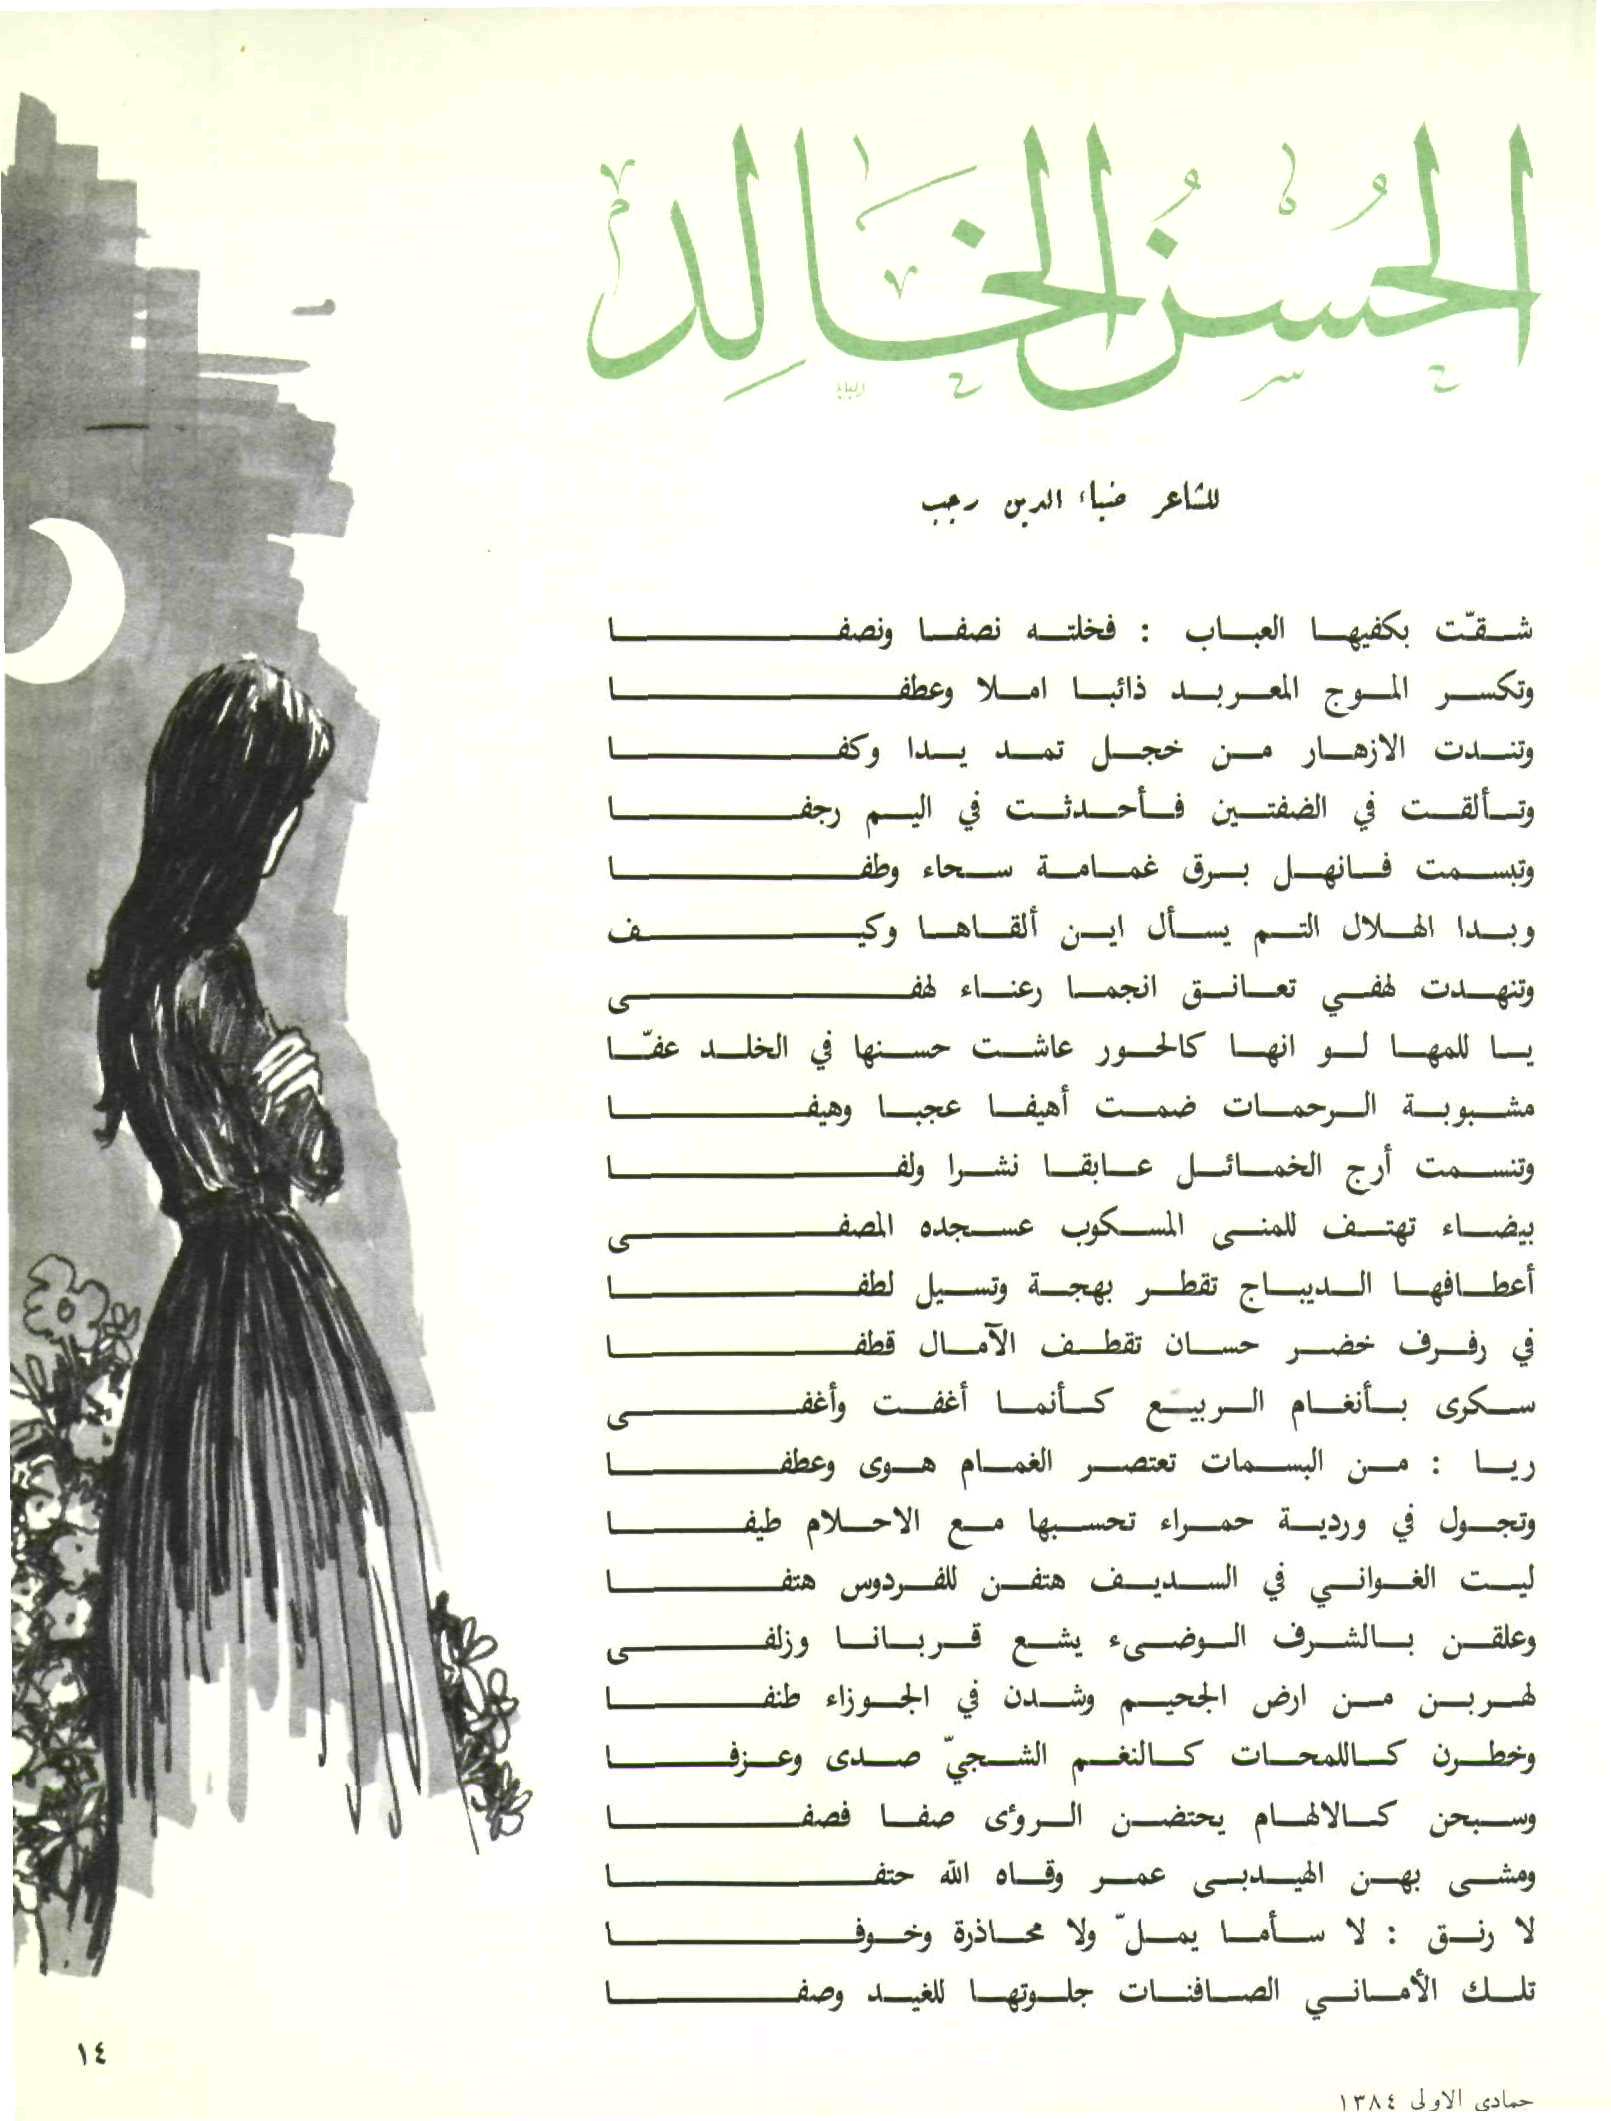 الحُسن الخالد
للشاعر ضياء الدين رجب
شقّت بكفيها العباب : فخلته نصفا ونصفا
وتكسر الموج المعربد ذائبا املا وعطفا
وتندت الازهار من خجل تمد يدا وكفا
وتألقت في الضفتين فأحدثت في اليم رجفا
وتبسمت فانهل برق غمامة سحاء وطفا
وبدا الهلال التم يسأل اين ألقاها وكيف
وتنهدت لهفي تعانق انجما رعناء لهفى
يا للمها لو انها كالحور عاشت حسنها في الخلد عفّا
مشبوبة الرحمات ضمت أهيفا عجبا وهيفا
وتنسمت أرج الخمائل عابقا نشرا ولفا
بيضاء تهتف للمنى المسكوب عسجده المصفى
أعطافها الديباج تقطر بهجة وتسيل لطفا
في رفرف خضر حسان تقطف الآمال قطفا
سكرى بأنغام الربيع كأنما أغفت وأغفى
ريا : من البسمات تعتصر الغمام هوى وعطفا
وتجول في وردية حمراء تحسبها مع الاحلام طيفا
ليت الغواني في السديف هتفن للفردوس هتفا
وعلقن بالشرف الوضىء يشع قربانا وزلفى
لهربن من ارض الجحيم وشدن في الجوزاء طنفا
وخطرن كاللمحات كالنغم الشجيّ صدى وعزفا
وسبحن كالالهام يحتضن الرؤى صفا فصفا
ومشى بهن الهيدبى عمر وقاه الله حتفا
لا رنق : لا سأما يملّ ولا محاذرة وخوفا
تلك الأماني الصافنات جلوتها للغيد وصفا
١٤
جمادى الاولى ١٣٨٤